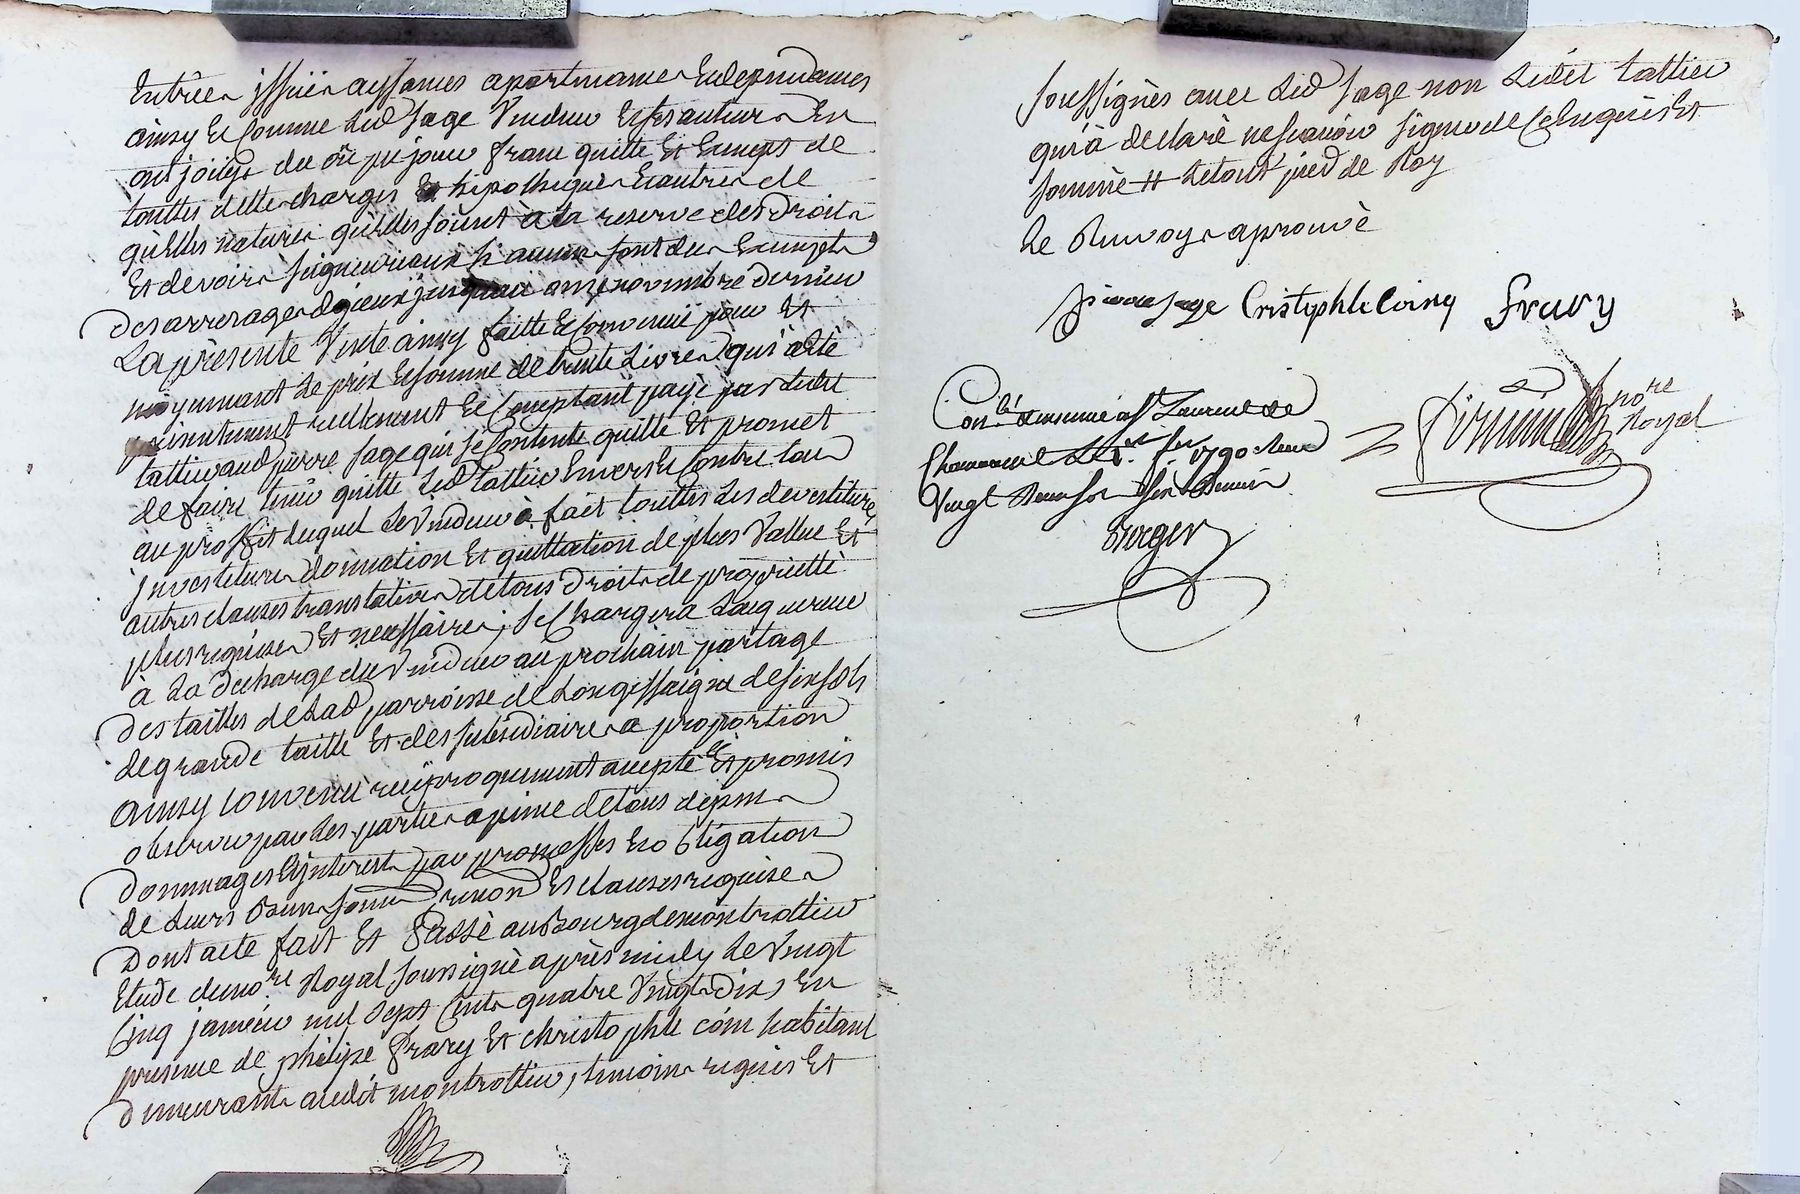 Entrées issües aysances apartenances Endependances
ainsy Et Comme Led Sage Vendeur Et ses auteurs En
ont joüys du où pu jouir franc quitte Et Exempt de
touttes dettes charges Et hipothèques Et autres de
quèlles natures quèlles soient à la reserve des droits
Et devoirs seigneuriaux sy aucuns sont dus Exempts
des arrerages d'iceux jusquau onze novembre dernier
La présente Vente ainsy faitte Et Convenüe pour Et
moyennant Le prix Et somme de trente Livres qui à èté
présentement reèllement Et Comptant payé par Ledit
tattieu aud pierre Sage qui se Contente quitte Et promet
de faire tenir quitte Led tattieu Envers Et Contre tous
au proffit duquel Le Vendeur à fait touttes Les devestitures
jnvestitures donnation Et quittation de plus Vallue Et
autres clauses translatives de tous droits de proprietté
plus requises Et nécessaires, se Chargera Lacquereur
à La decharge du Vendeur au prochain partage
des tailles de Lad parroisse de Longessaigne de six sols
de grande taille Et des subsidiaires a proportion
ainsy Convenu reciproquement accepté Et promis
observer par Les parties a peine de tous depens
dommages Et jnterests par promesses Et obligation
de Leurs Biens soum renon Et clauses requises
Dont acte fait Et Passè au Bourg de montrottier
Etude du no.re Royal soussignè après midy Le Vingt
Cinq janvier mil sept Cents quatre Vingts dix, En
presence de phèlipe fravy Et christophle coin habitant
demeurants audit montrottier, temoins requis Et
soussignès avec Led Sage non Ledit tattieu
qui à declarè ne scavoir signer de Ce Enquis Et
sommè # Le tout pied de Roy
Le Renvoy aprouvè
pierre sage Cristophle Coing fravy
no.re
Royal
Con.lé Insinué à S.t Laurent de
Chamousset Le 1.er f.er 1790 Recu
Vingt deux sols six deniers